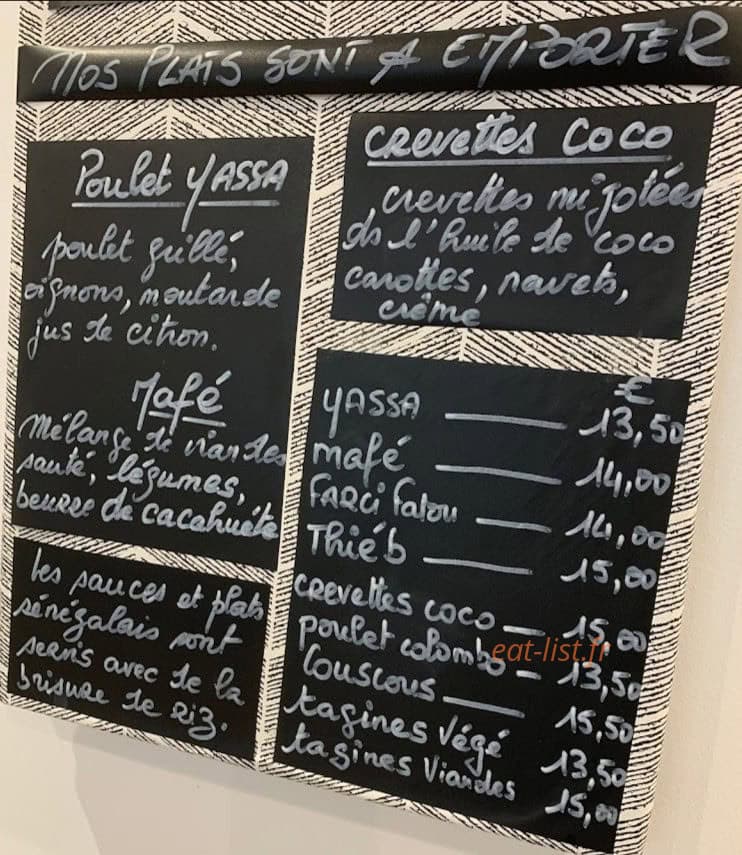 NOS PLATS SONT A EMPORTER
Poulet YASSA
poulet grillé,
oignons, moutarde
jus de citron.
Mafé
Mélange de viandes
sauté, légumes,
beurre de cacahuète
les sauces et plats
sénégalais sont
servis avec de la
brisure de Riz.
CREVETTES COCO
crevettes mijotées
ds l'huile de coco
carottes, navets,
crème
€
YASSA — 13,50
mafé — 14,00
FARCi Fatou — 14,00
Thiéb — 15,00
CREVETTES COCO — 15,00
poulet colombo — 13,50
Couscous — 15,50
tagines Végé 13,50
tagines Viandes 15,00
eat-list.fr